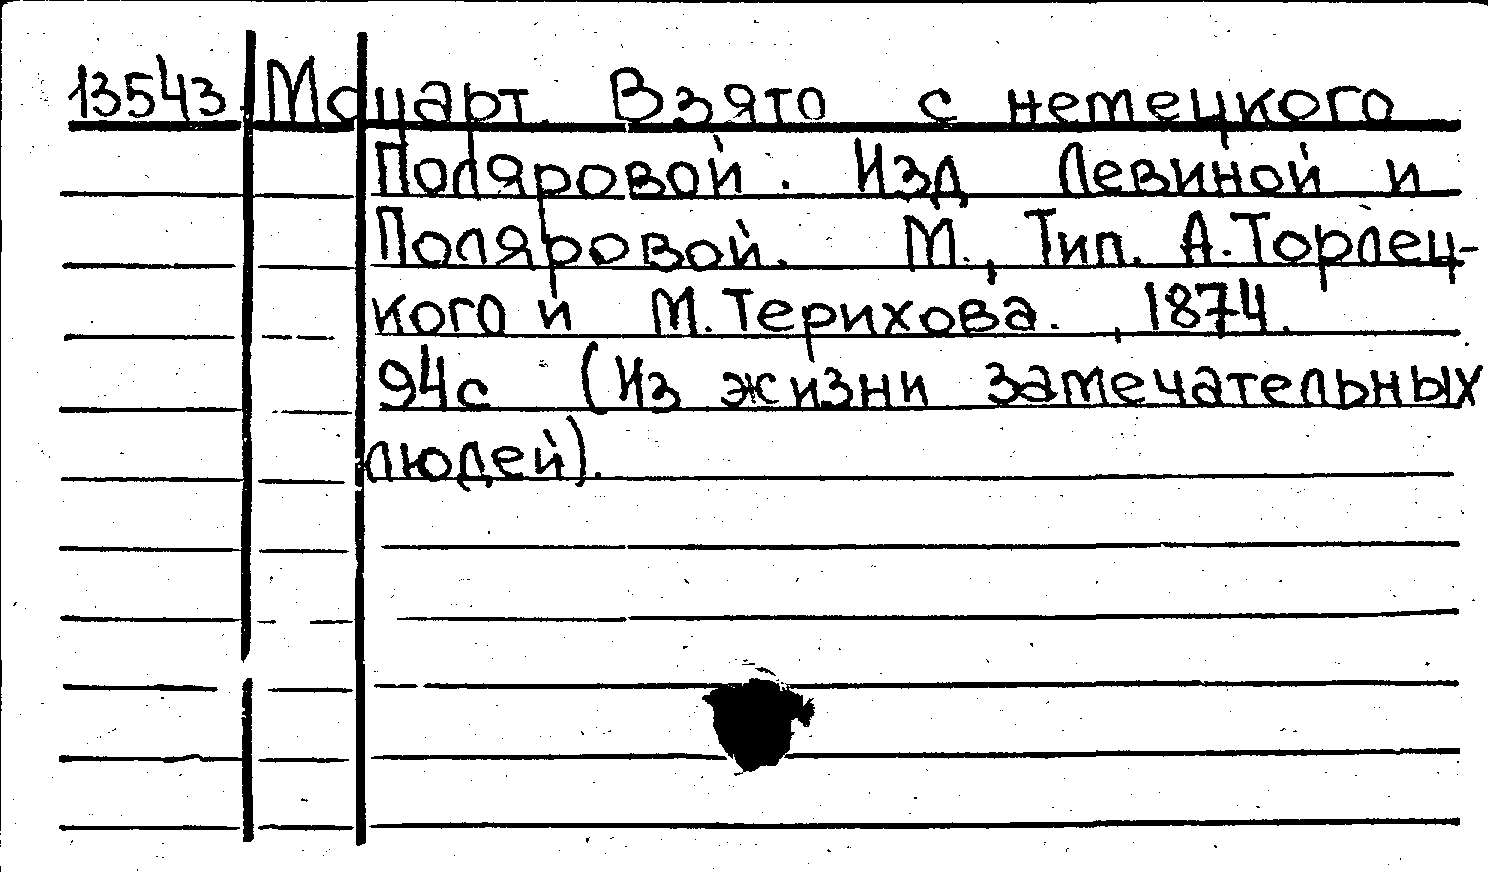 13543 Моцарт. Взято с немецкого
Поляровой. Изд Левиной и
Поляровой. М., Тип. А. Торлец-
кого и М. Терихова. , 1874.
94с (Из жизни замечательных
людей).